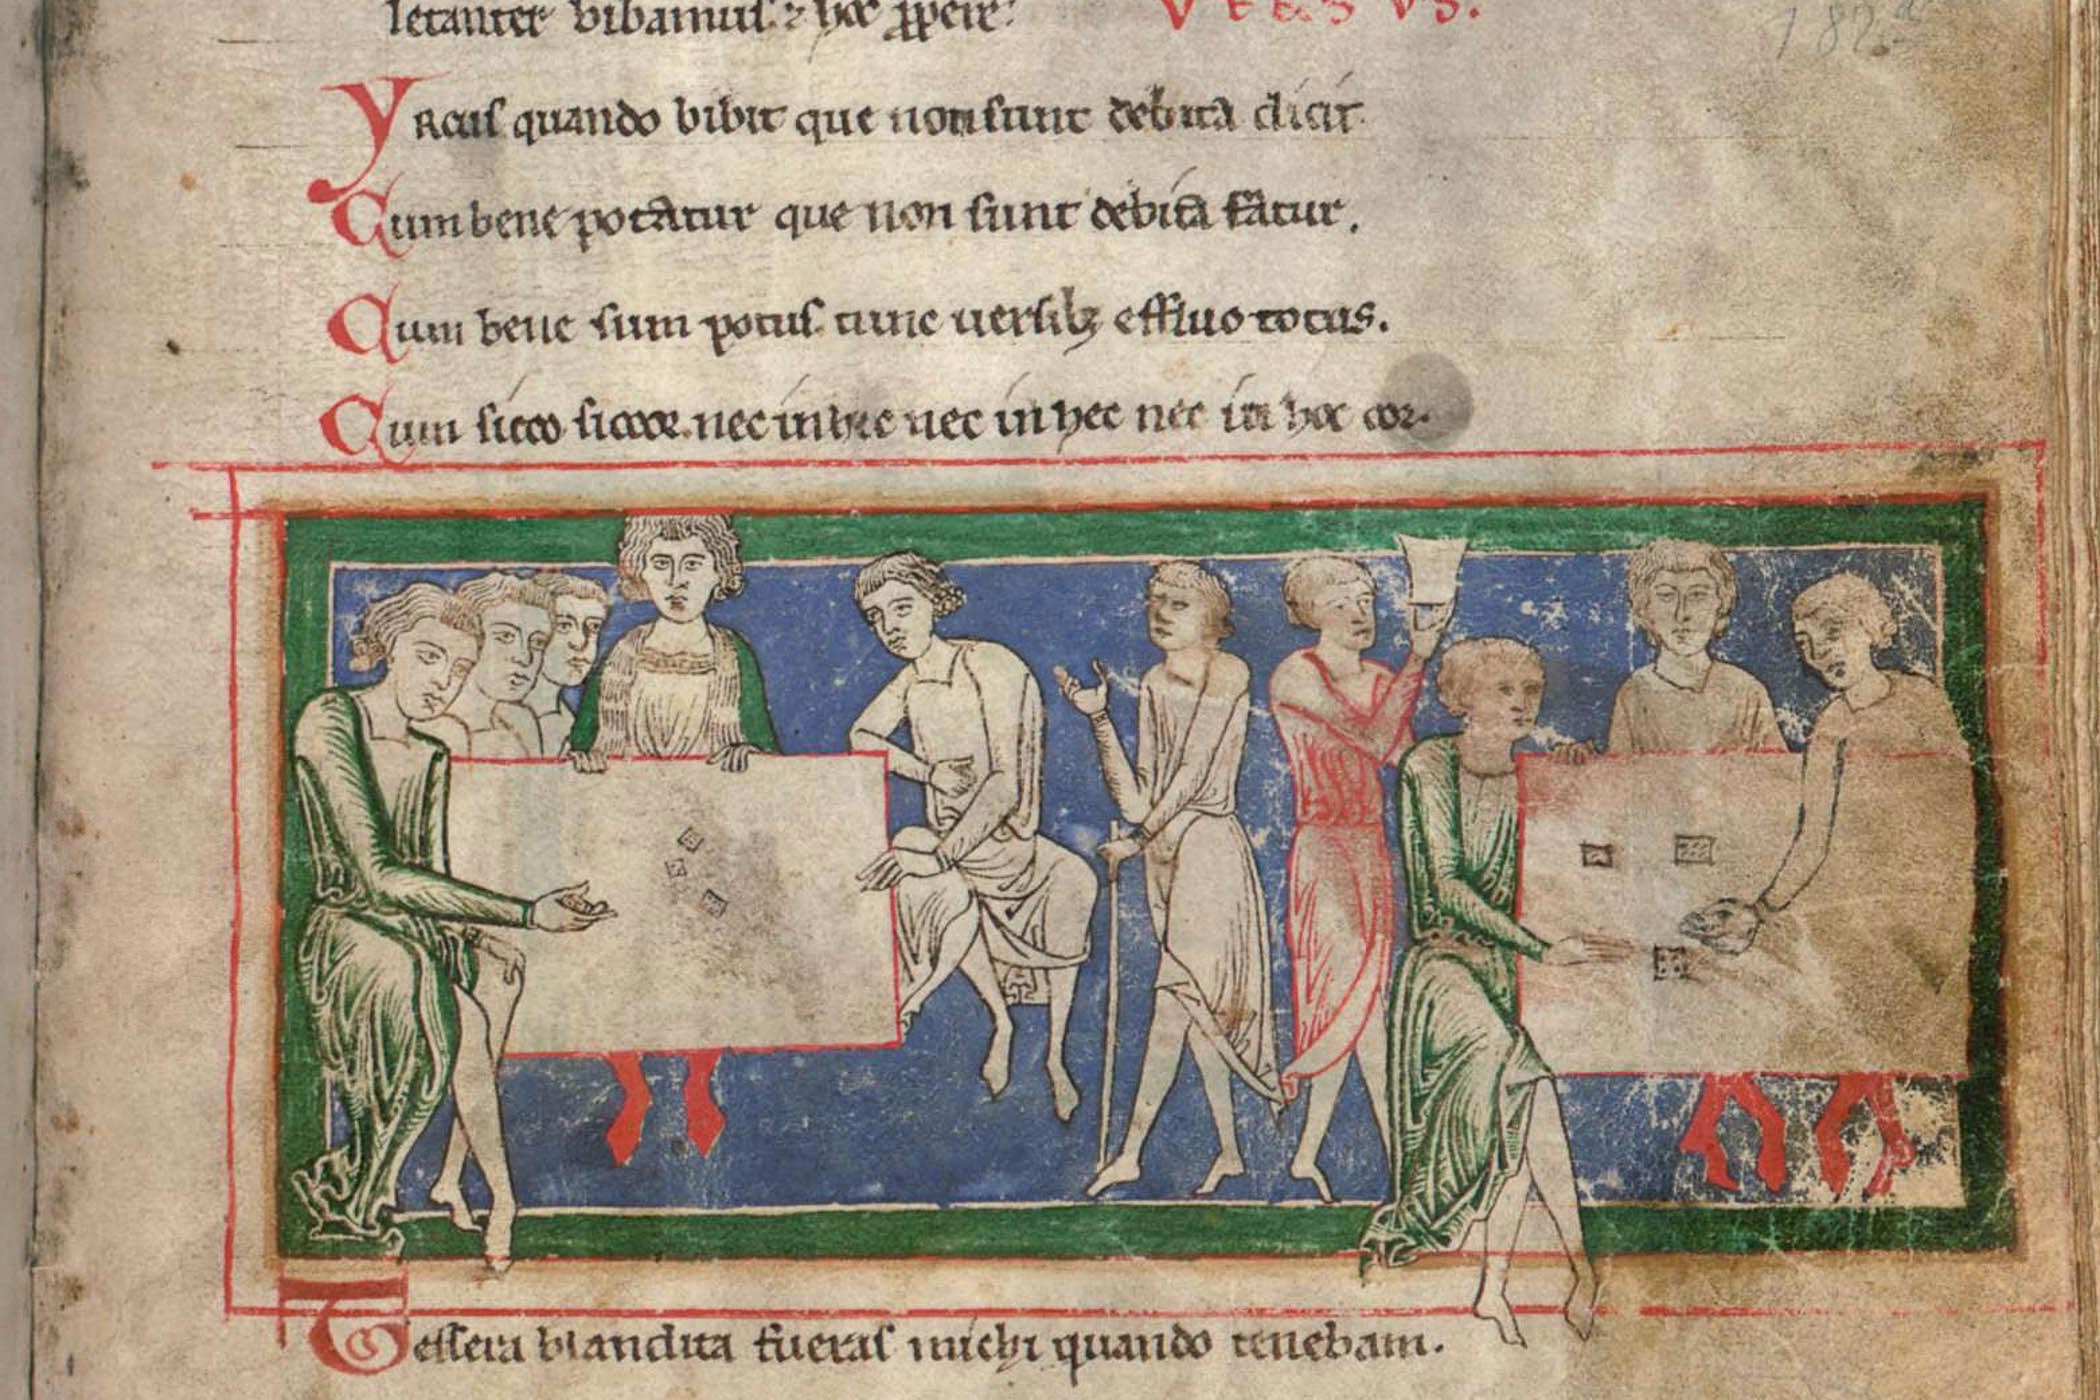 letanter bibamus ⁊ hoc ꝓpere: VERSVS.
182
Yrcus quando bibit que non sunt debita dicit
Cum bene potatur que non sunt debita fatur.
Cum bene sum potus tunc uersibꝫ effluo totus.
Cum sicco siccor. nec in hic nec in hec nec in hoc cor.
Tessera blandita fueras michi quando tenebam.